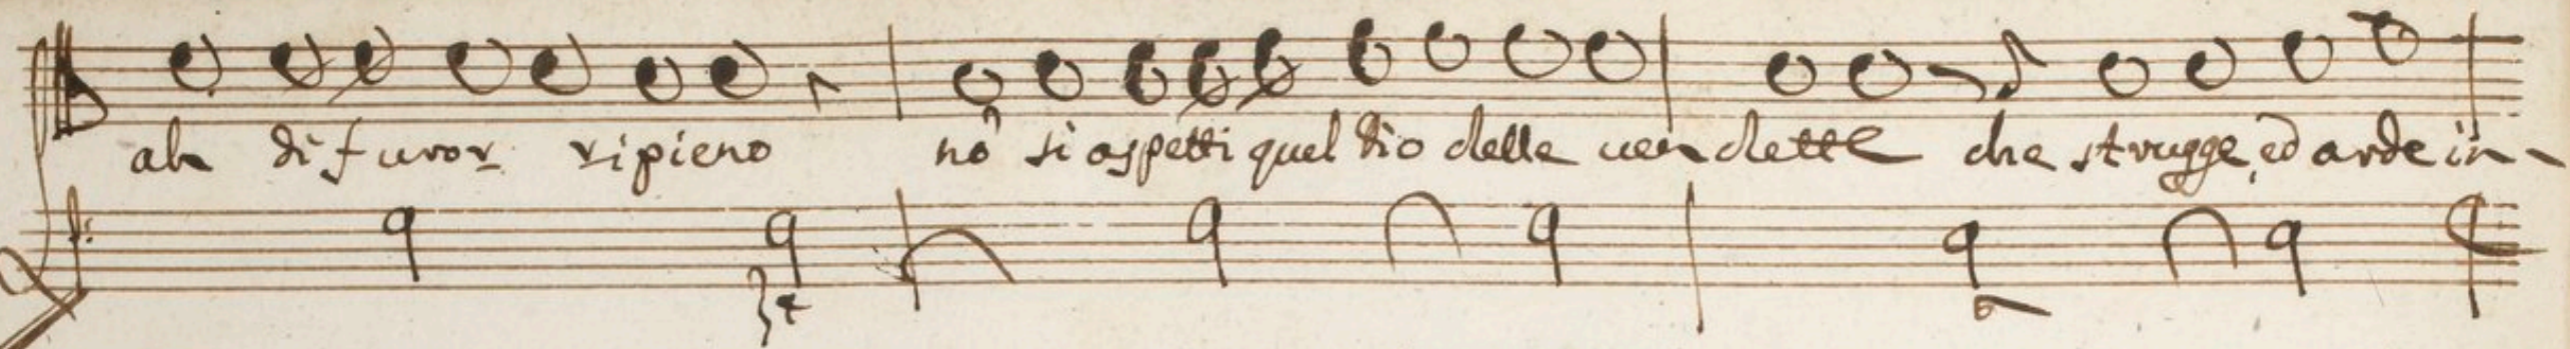 ah di furor ripieno nõ si aspetti quel dio delle uendette che strugge, ed arde in-